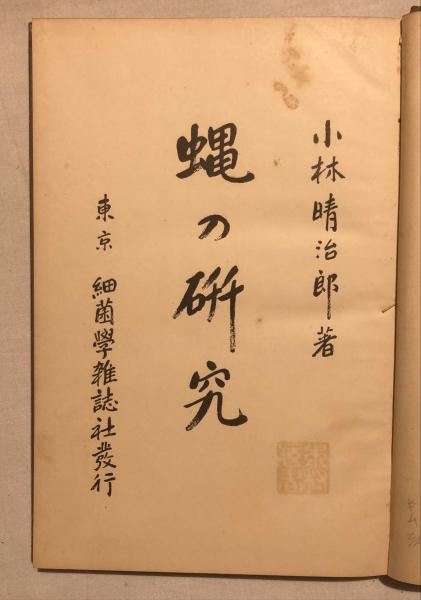 小林晴治郎著
蝿の硏究
東京 細菌學雑誌社發行